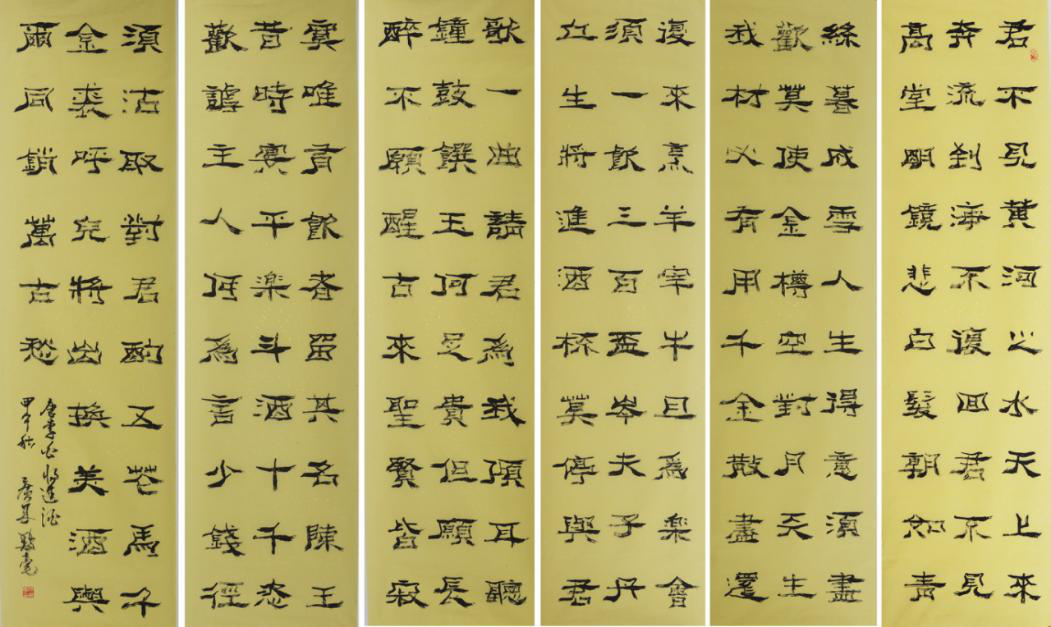 君不見黃河之水天上來
奔流到海不復回君不見
高堂明鏡悲白髮朝如青
絲暮成雪人生得意須盡
歡莫使金樽空對月天生
我材必有用千金散盡還
復來烹羊宰牛且為楽會
須一飲三百盃岑夫子丹
丘生將進酒杯莫停與君
歌一曲請君為我傾耳聽
鐘鼓饌玉何足貴但願長
醉不願醒古來聖賢皆寂
寞唯有飲者留其名陳王
昔時宴平楽斗酒十千恣
歡謔主人何為言少錢徑
須沽取對君酌五花馬千
金裘呼兒將出換美酒與
爾同銷萬古愁
唐李白將進酒
甲午秋